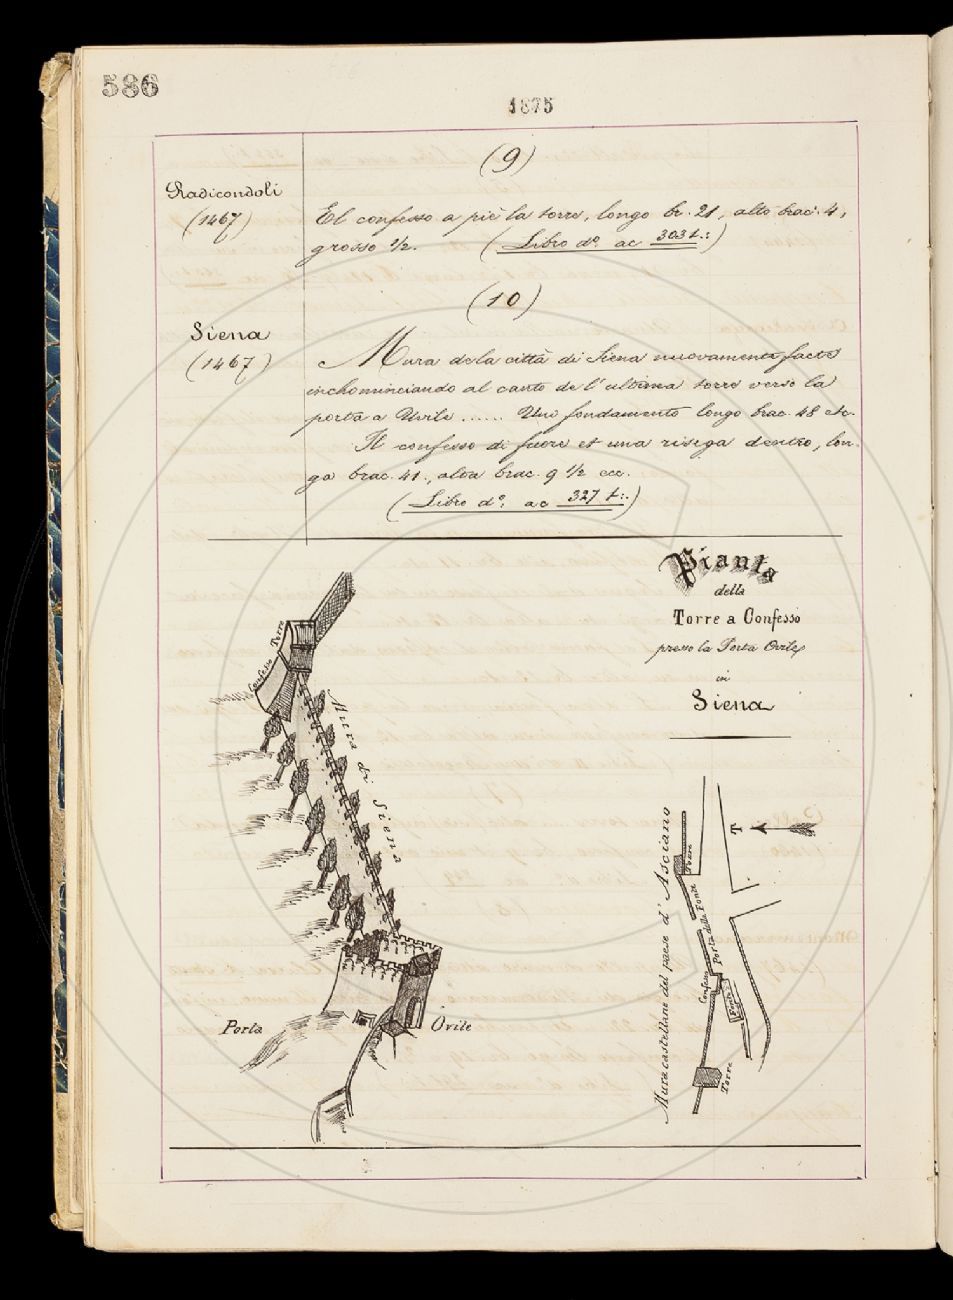 586
1875
(9)
Radicondoli
(1467)
El confesso a piè la torre, longo br. 21, alto brac. 4,
grosso ½. (Libro d.º ac 303 t.:)
(10)
Siena
(1467)
Mura de la città di Siena nuovamente facte
inchominciando al canto de l'ultima torre verso la
porta a Uvile ...... Uno fondamento longo brac. 48 etc.
Il confesso di fuore et una risega dentro, lon-
go brac. 41., alta brac. 9 ½ ecc.
(Libro d.º: ac 327 t:.)
Pianta
della
Torre a Confesso
presso la Porta Ovile
in
Siena
Torre
Confesso
Mura di Siena
Porta Ovile
Mura castellane del paese d'Asciano
Torre
Porta della Fonte
Confesso
Fonte
Torre
T